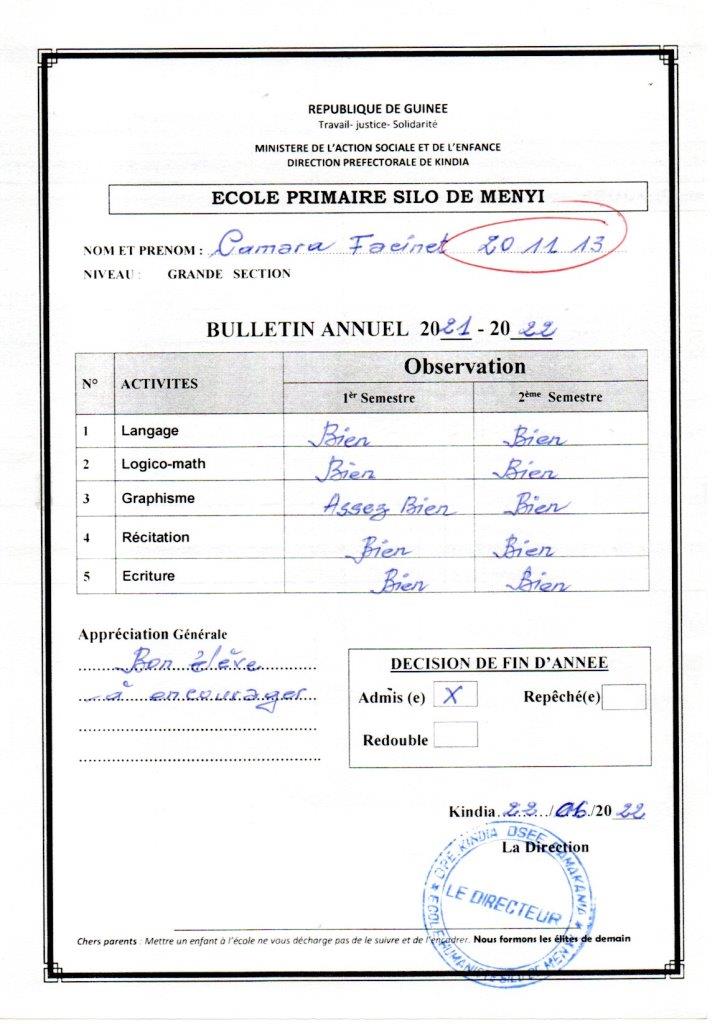 REPUBLIQUE DE GUINEE
Travail- justice- Solidarité
MINISTERE DE L'ACTION SOCIALE ET DE L'ENFANCE
DIRECTION PREFECTORALE DE KINDIA
ECOLE PRIMAIRE SILO DE MENYI
NOM ET PRENOM : Camara Facinet 20 11 13
NIVEAU : GRANDE SECTION
BULLETIN ANNUEL 2021 - 2022
N° ACTIVITES Observation
1èr Semestre 2ème Semestre
1 Langage Bien Bien
2 Logico-math Bien Bien
3 Graphisme Assez Bien Bien
4 Récitation Bien Bien
5 Ecriture Bien Bien
Appréciation Générale
Bon élève
à encourager
DECISION DE FIN D'ANNEE
Admis (e) X Repêché(e)
Redouble
Kindia 22/06/2022
La Direction
DPE.KINDIA DSEE DAMAKANIA
LE DIRECTEUR
ECOLE HUMANISTE SILO DE MENYI
Chers parents : Mettre un enfant à l'école ne vous décharge pas de le suivre et de l'encadrer. Nous formons les élites de demain